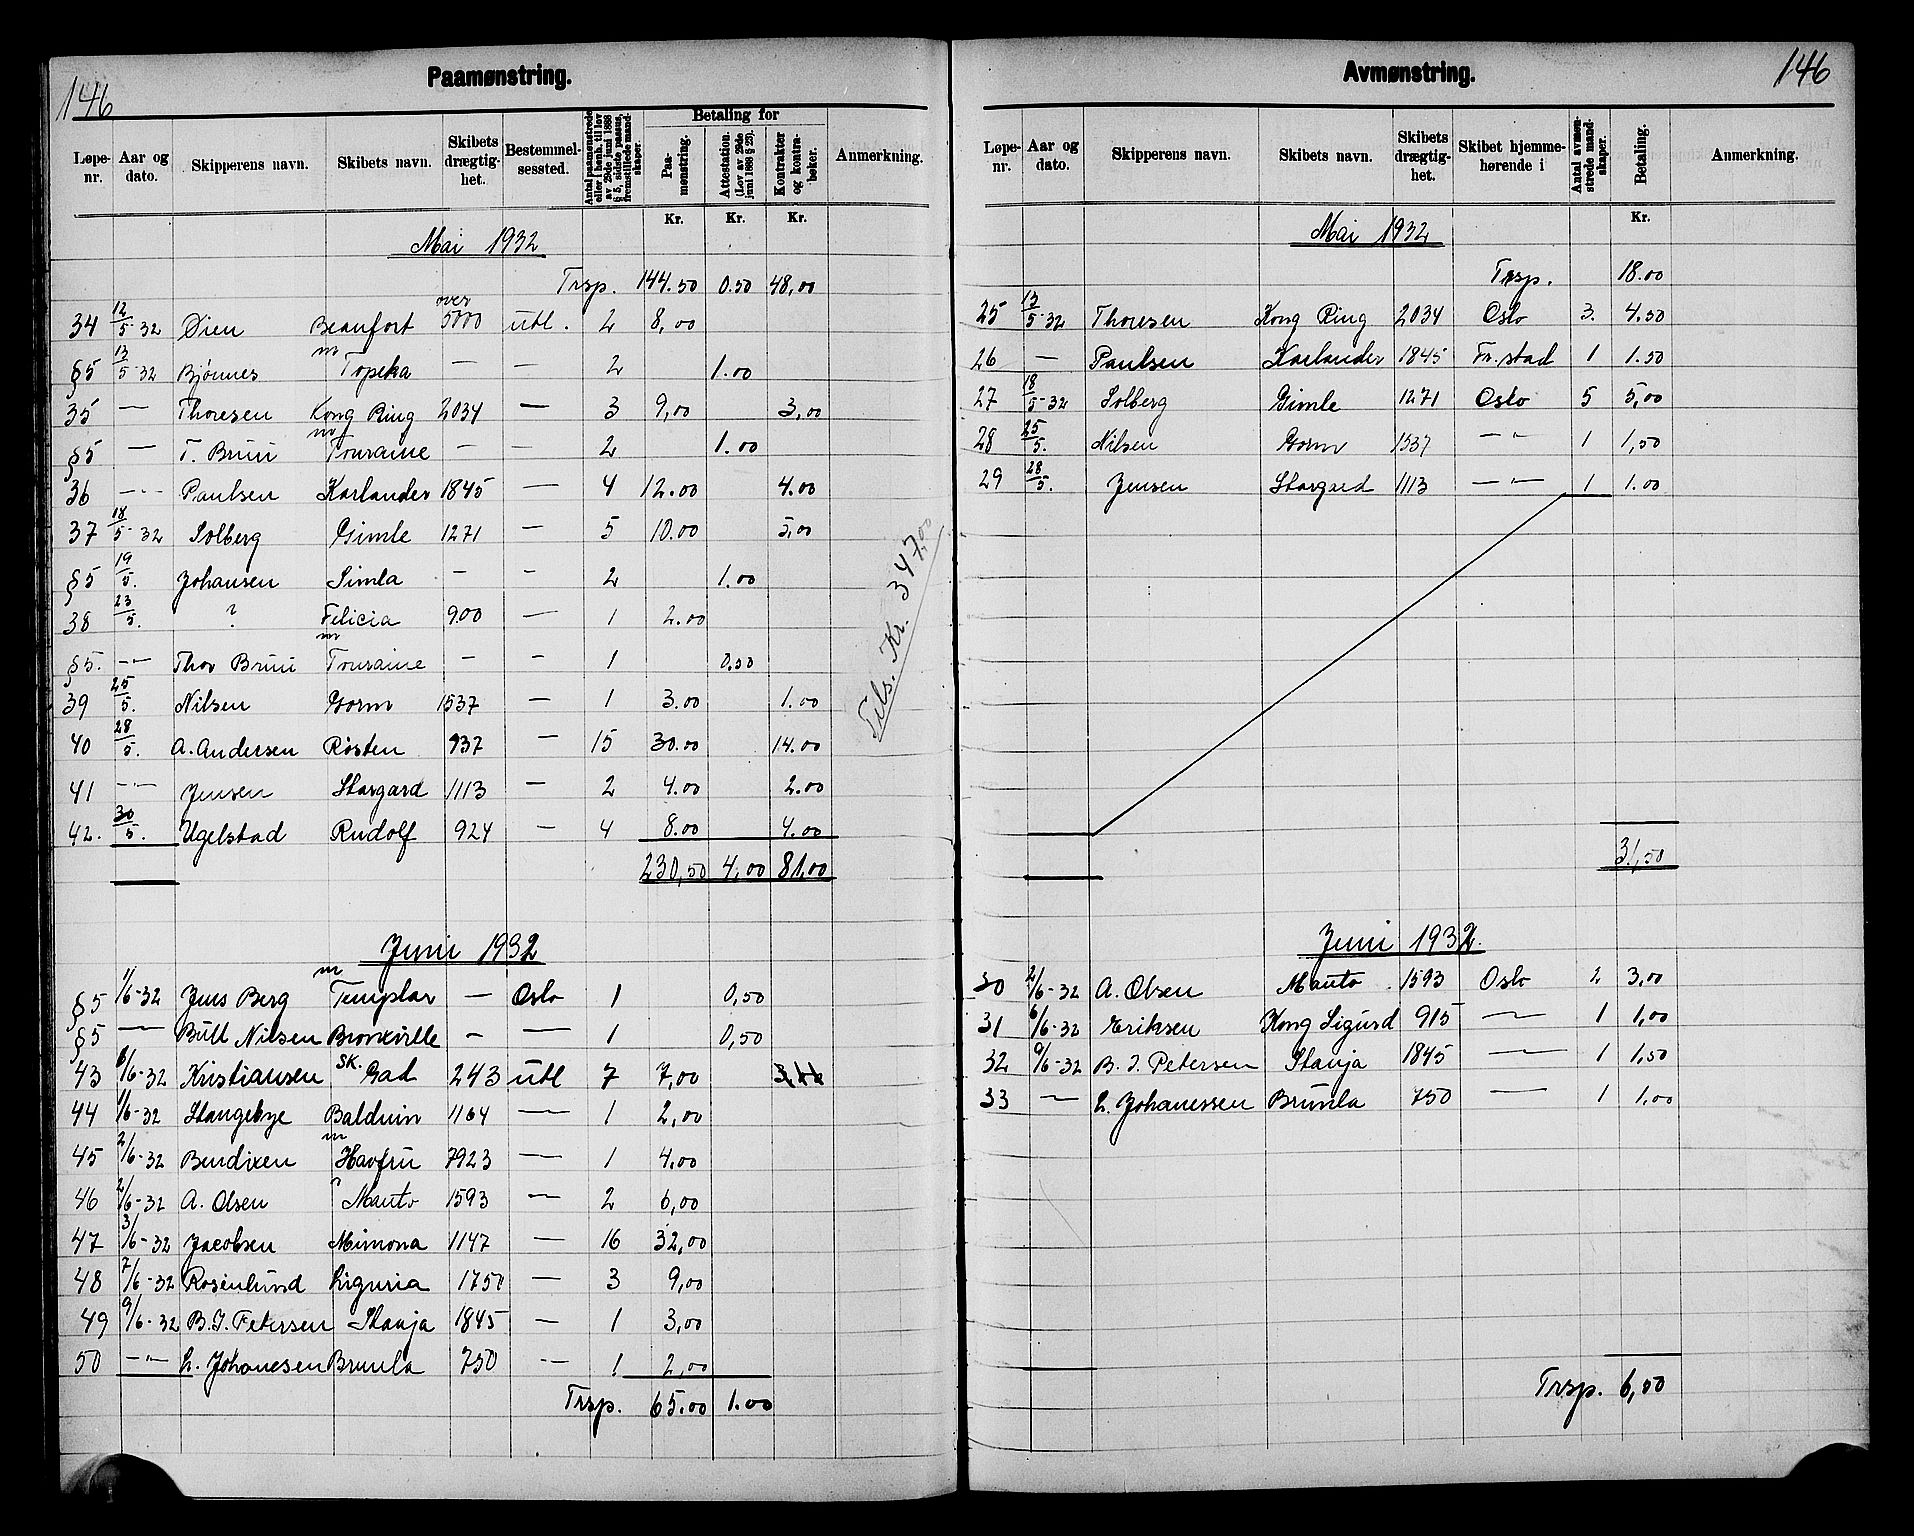 146
Paamønstring.
Løpe-nr. | Aar og dato. | Skipperens navn. | Skibets navn. | Skibets drægtig-het. | Bestemmel-sessted. | Antal paamønstrede eller i henh. til lov av 29de juni 1888 § 5, sidste passus, fremstillede mand-skaper. | Betaling for | Paa-mønstring. | Attestation. (Lov av 29de juni 1888 § 23). | Kontrakter og kontra-bøker. | Anmerkning.
Kr. | Kr. | Kr.
Mai 1932
Trsp. 144.50 0.50 48,00
34 12/5-32 Dien Beaufort over 5000 utl. 2 8,00
§5 13/5-32 Bjønnes m Topeka — — 2 1.00
35 — Thoresen Kong Ring 2034 — 3 9,00 3,00
§5 — T. Bruu m Touraine — — 2 1.00
36 —"— Paulsen Karlander 1845 — 4 12.00 4.00
37 18/5-32 Solberg Gimle 1271 — 5 10.00 5,00
§5 19/5. Johansen Simla — — 2 1.00
38 23/5. ? Felicia 900 — 1 2.00
§5. —"— Thor Bruu m Touraine — — 1 0.50
39 25/5. Nilsen Gorm 1537 — 1 3.00 1.00
40 28/5. A. Andersen Røsten 937 — 15 30.00 14.00
41 —"— Jensen Stargard 1113 — 2 4.00 2.00
42. 30/5. Ugelstad Rudolf 924 — 4 8.00 4.00
230,50 4,00 81,00
Tils. Kr. 347,00
Juni 1932
§5 1/6-32 Jens Berg m Templar — Oslo 1 0,50
§5 — Bull Nilsen Bronxville — — 1 0,50
43 6/6-32 Kristiansen SK. Gad 243 utl 7 7,00
44 1/6-32 Stangebye Balduin 1164 — 1 2,00
45 2/6-32 Bendixen m Havfru 7923 — 1 4,00
46 2/6-32 A. Olsen Manto 1593 — 2 6,00
47 3/6-32 Jacobsen Mimona 1147 — 16 32,00
48 7/6-32 Rosenlund Liguria 1750 — 3 9,00
49 9/6-32 B.J. Petersen Stanja 1845 — 1 3,00
50 —"— L. Johanesen Brunla 750 — 1 2,00
Trsp. 65.00 1.00
Avmønstring.
146
Løpe-nr. | Aar og dato. | Skipperens navn. | Skibets navn. | Skibets drægtig-het. | Skibet hjemme-hørende i | Antal avmøn-strede mand-skaper. | Betaling. | Anmerkning.
Kr.
Mai 1932
Trsp. 18.00
25 13/5-32 Thoresen Kong Ring 2034 Oslo 3. 4.50
26 — Paulsen Karlander 1845 Fr.stad 1 1.50
27 18/5-32 Solberg Gimle 1271 Oslo 5 5,00
28 25/5. Nilsen Gorm 1537 —"— 1 1,50
29 28/5. Jensen Stargard 1113 —"— 1 1.00
31,50
Juni 1932.
30 2/6-32 A. Olsen Manto 1593 Oslo 2 3,00
31 6/6-32 Eriksen Kong Sigurd 915 — 1 1,00
32 9/6-32 B. J. Petersen Stanja 1845 — 1 1,50
33 — L. Johanessen Brunla 750 — 1 1.00
Trsp. 6,50